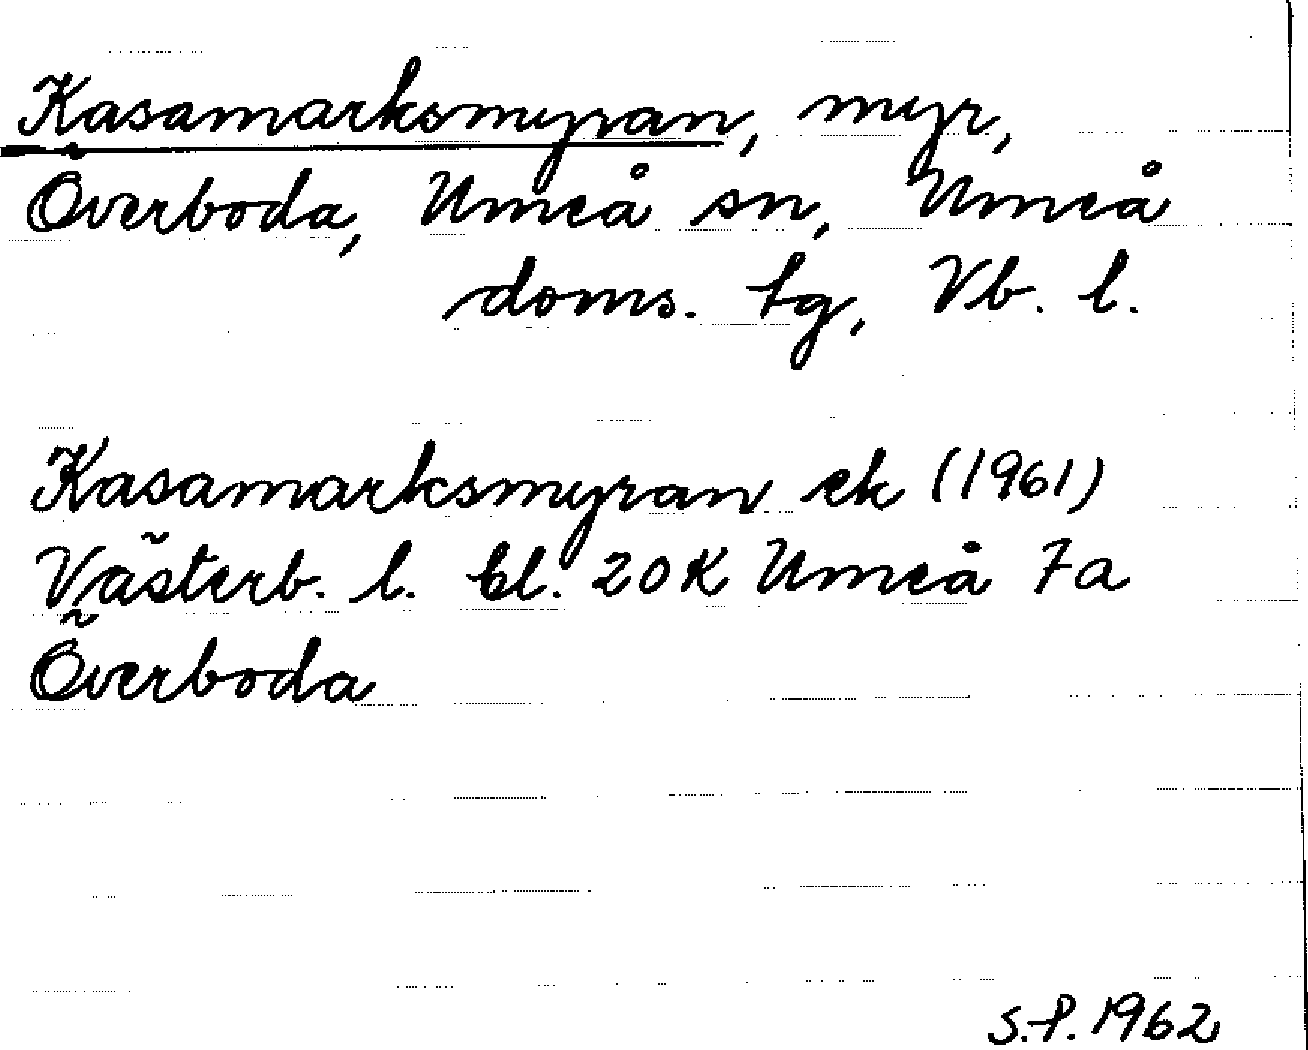 Kasamarksmyran, myr,
Överboda, Umeå sn, Umeå
doms. tg, Vb. l.
Kasamarksmyran ek (1961)
Västerb. l. bl. 20K Umeå 7a
Överboda
S.P. 1962